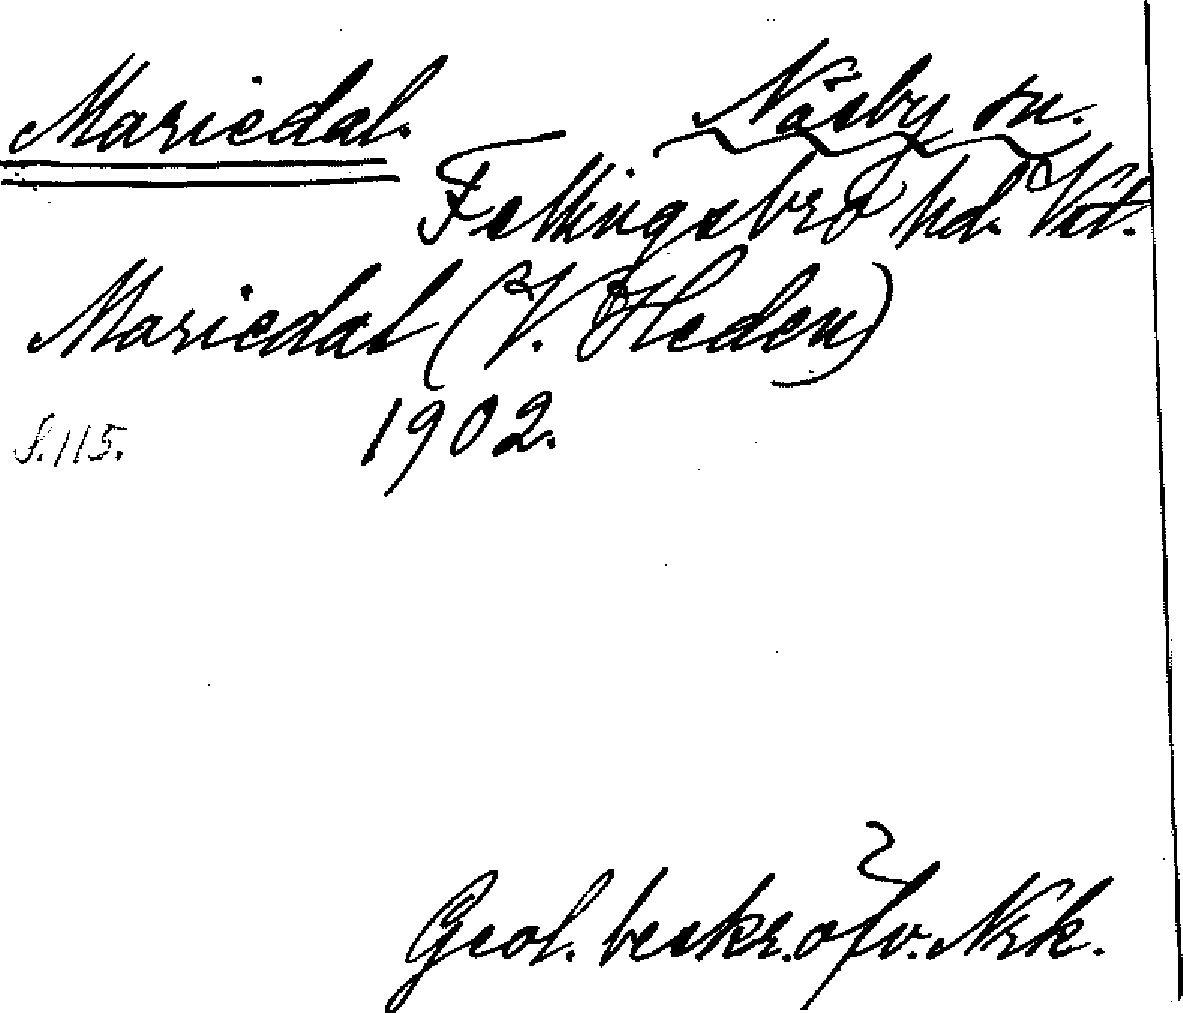 Mariedal. Näsby sn.
Fellingsbro hd. Vstm.
Mariedal (V. Heden)
1902.
S. 115.
Geol. beskr. öfv. Nrk.